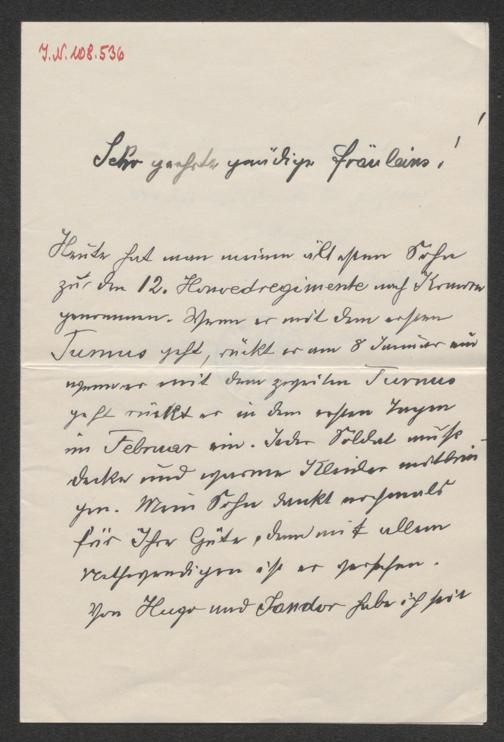 J.N. 108.536
Sehr geehrte gnädige Fräuleins!
Heute hat man meinen ältesten Sohn
zur den 12. Honvedregimente nach
genommen. Wenn er mit dem ersten
Turnus geht, rückt er am 8 Januar ein
wenn er mit dem zweiten Turnus
geht rückt er in dem ersten Tagen
im Februar ein. Jeder Soldat muß
decke und warme Kleider mitbrin-
gen. Mein Sohn dankt nochmals
für Ihre Güte, denn mit allem
nothwendigen ist er versehen.
Von Hugo und Sandor habe ich seit